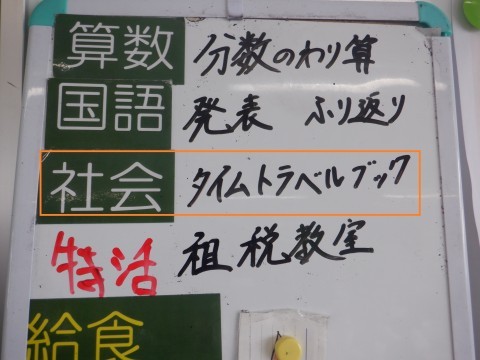 算数 分数のわり算
国語 発表 ふり返り
社会 タイムトラベルブック
特活 租税教室
給食